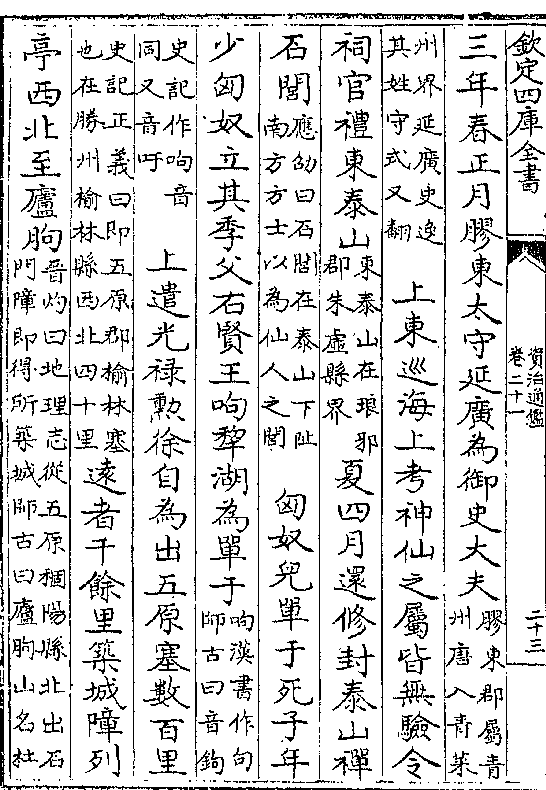 欽定四庫全書
資治通鑑
卷二十一
二十三
三年春正月膠東太守延廣為御史大夫
膠東郡屬青
州唐入青萊
州界延廣史逸
其姓守式又翻
上東巡海上考神仙之屬皆無驗令
祠官禮東泰山
東泰山在琅邪
郡朱虛縣界
夏四月還修封泰山禪
石閭
應劭曰石閭在泰山下阯
南方方士以為仙人之閭
匈奴兒單于死子年
少匈奴立其季父右賢王呴犂湖為單于
呴漢書作句
師古曰音鉤
史記作呴音
同又音吁
上遣光禄勲徐自為出五原塞數百里
史記正義曰即五原郡榆林塞
也在勝州榆林縣西北四十里
遠者千餘里築城障列
亭西北至廬朐
晉灼曰地理志從五原稒陽縣北出石
門障即得所築城師古曰廬朐山名杜